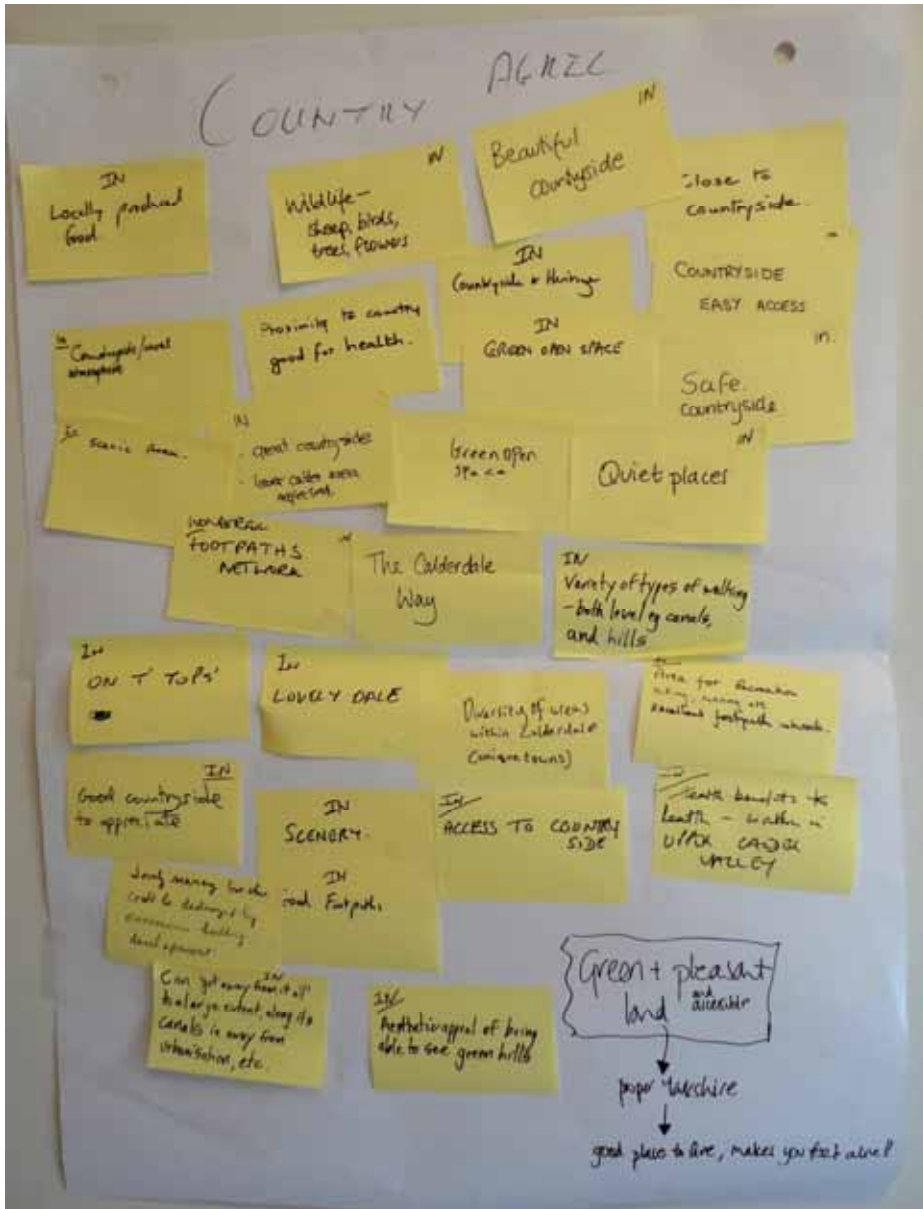 COUNTRY AGRIC
IN
Locally produced
food.
IN
Wildlife –
sheep, birds,
trees, flowers
IN
Beautiful
countryside
Close to
countryside.
IN
Countryside + Heritage
COUNTRYSIDE
EASY ACCESS
IN
Countryside/
atmosphere
Proximity to country
good for health.
IN
GREEN OPEN SPACE
in.
Safe.
countryside
In
Scenic Area.
IN
- great countryside
-
Green open
space
IN
Quiet places
WONDERFUL
FOOTPATHS
NETWORK
The Calderdale
Way
IN
Variety of types of walking
– both level eg canals,
and hills
In
ON T' TOPS'
In
LOVELY DALE
Diversity of views
within Calderdale
(unique towns)
Area for Recreation
excellent footpath network.
IN
Good countryside
to appreciate
IN
SCENERY.
IN
ACCESS TO COUNTRY
SIDE
IN
Health benefits to
health –
UPPER CALDER
VALLEY
could be destroyed by
building
development
IN
Footpaths
IN
Can get away from it all
to a large extent, along its
canals in away from
urbanisation, etc.
IN
Aesthetic appeal of being
able to see green hills
Green + pleasant
land and
accessible
proper Yorkshire
good place to live, makes you feel alive!